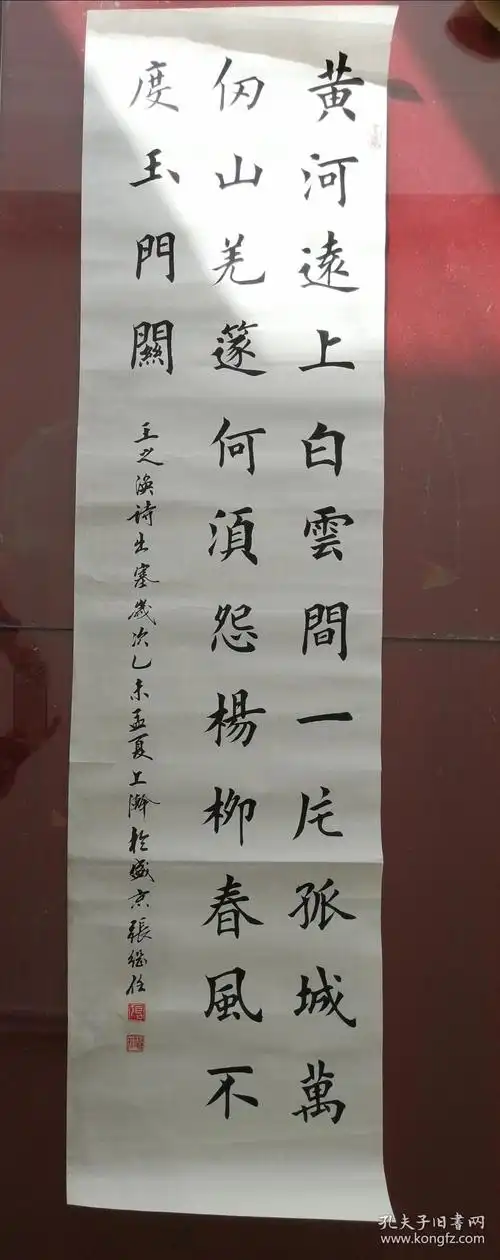 黃河遠上白雲間一片孤城萬
仞山羌篴何須怨楊柳春風不
度玉門關
王之渙詩出塞歲次乙未孟夏上澣於盛京張繼任
孔夫子旧书网
www.kongfz.com